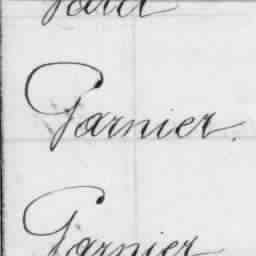 Garnier.
Garnier